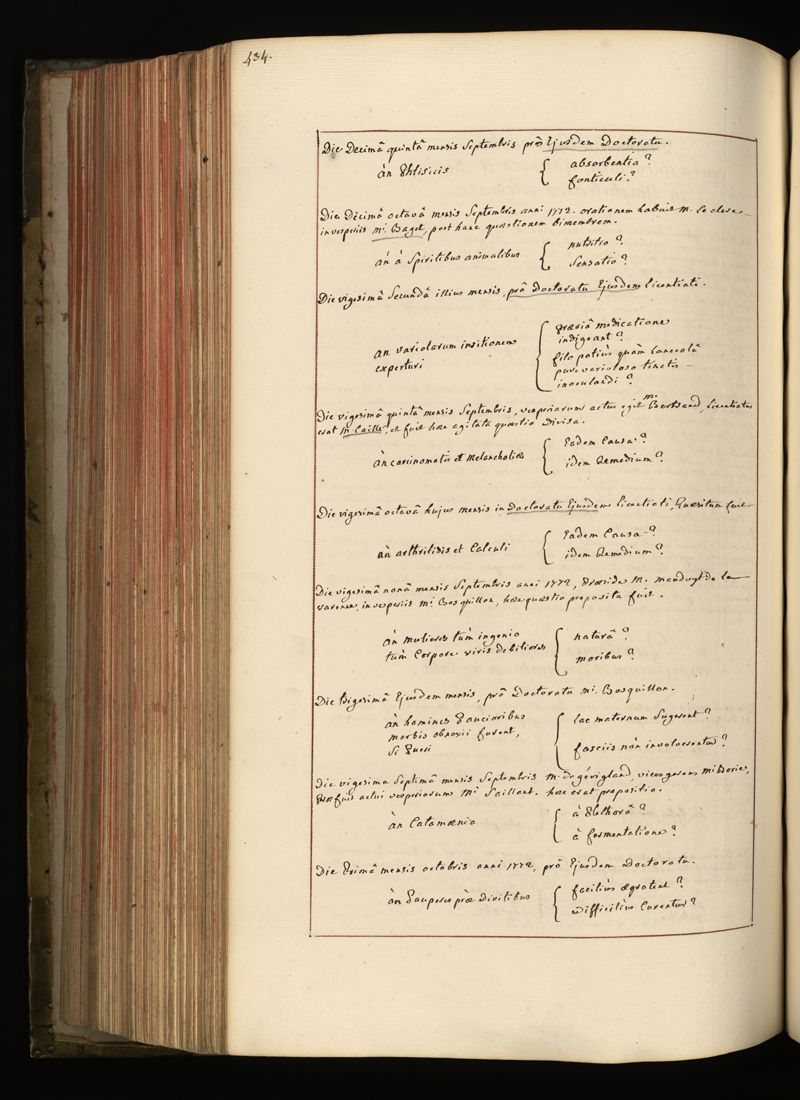 434.
Die Decimâ quintâ mensis Septembris prō Ejusdem Doctoratu.
än Phtisicis { absorbentia ?
fonticuli ?
Die Décimâ octavâ mensis Septembris anni 1772. orationem habuit m. Le clerc
in vesperiis mi. Baget, post hanc quæstionem bimembrem.
än à Spiritibus animalibus { nutritio ?
Sensatio ?
Die vigesimâ Secundâ illius mensis, prō Doctoratu Ejusdem licentiati.
an variolarum insitionem
experturi { præviâ medicatione
indigeant ?
filo potiùs quàm lanceolâ
pure varioloso tinctis
inoculandi ?
Die vigesimâ quintâ mensis Septembris, vesperiarum actus egit mr. Bertrand, Licentiatus
erat m. Caille, et fuit hæc agitata quæstio Divisa.
än carcinomatis et Melancholiæ { Eadem Causa ?
idem Remedium ?
Die vigesimâ octavâ hujus mensis in Doctoratu Ejusdem licentiati, Quæsitum fuit
än arthritidis et Calculi { Eadem Causa ?
idem Remedium ?
Die vigesimâ nonâ mensis Septembris anni 1772, Præside M. mauduyt de la
varenne, in vesperiis mi. Bosquillon, hæc quæstio proposita fuit.
än Mulieres tùm ingenio
tùm Corpore viris debiliores { naturâ ?
moribus ?
Die Ejusdem mensis, prō Doctoratu mi. Bosquillon.
än homines Paucioribus
morbis obnoxii forent,
Si Pueri { lac maternum Sugerent ?
fasciis nōn involverentur ?
Die vigesima Septimâ mensis Septembris m. de gévigland, vices gerens mi borie,
Præfuit actui vesperiarum Mi Saillant. hæc erat propositio.
än Catamænia { à Plethorâ ?
à fermentatione ?
Die Primâ mensis octobris anni 1772, prō Ejusdem Doctoratu.
än Pauperes præ Divitibus { faciliùs ægrotent ?
difficiliùs Curentur ?